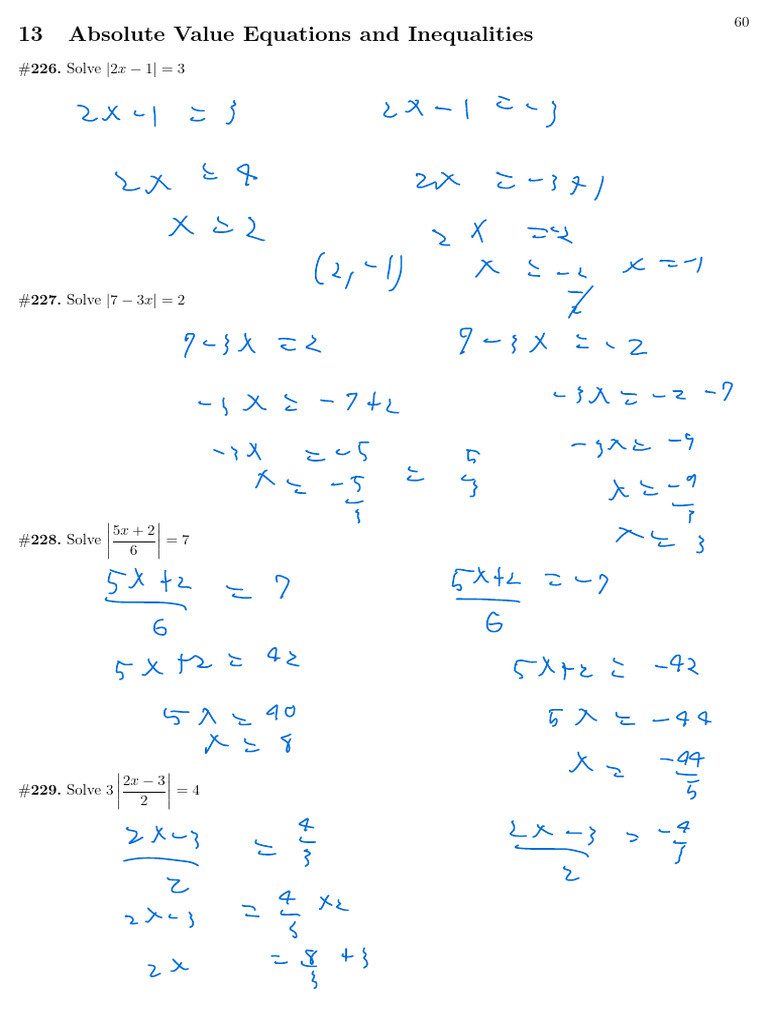 60
13 Absolute Value Equations and Inequalities
#226. Solve |2x − 1| = 3
2x - 1 = 3
2x - 1 = -3
2x = 4
2x = -3+1
x = 2
2x = -2
(2, -1)
x = -2/2
x = -1
#227. Solve |7 − 3x| = 2
7-3x = 2
7-3x = -2
-3x = -7+2
-3x = -2 -7
-3x = -5
-3x = -9
x = -5/3 = 5/3
x = -9/3
x = 3
#228. Solve |(5x + 2)/6| = 7
(5x+2)/6 = 7
(5x+2)/6 = -7
5x+2 = 42
5x+2 = -42
5x = 40
5x = -44
x = 8
x = -44/5
#229. Solve 3|(2x − 3)/2| = 4
(2x-3)/2 = 4/3
(2x-3)/2 = -4/3
2x-3 = 4/3 x2
2x = 8/3 +3